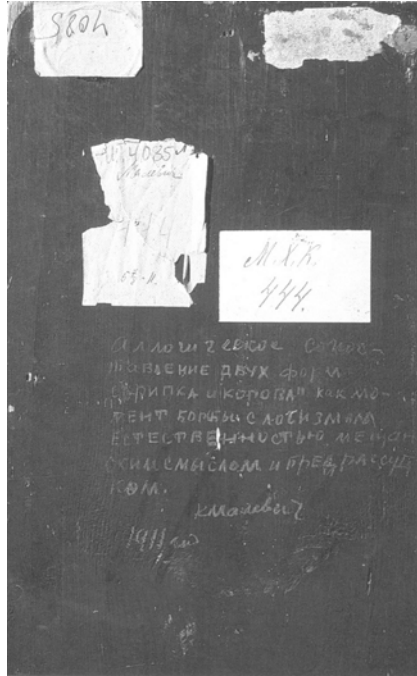 4085
4085
Малевич
М.Х.К.
444.
Аллогическое сопос-
тавление двух форм
„скрипка и корова" как мо-
мент борьбы с логизмом
естественностью, мещан
ским смыслом и предрассуд
ком.
КМалевич
1911 год